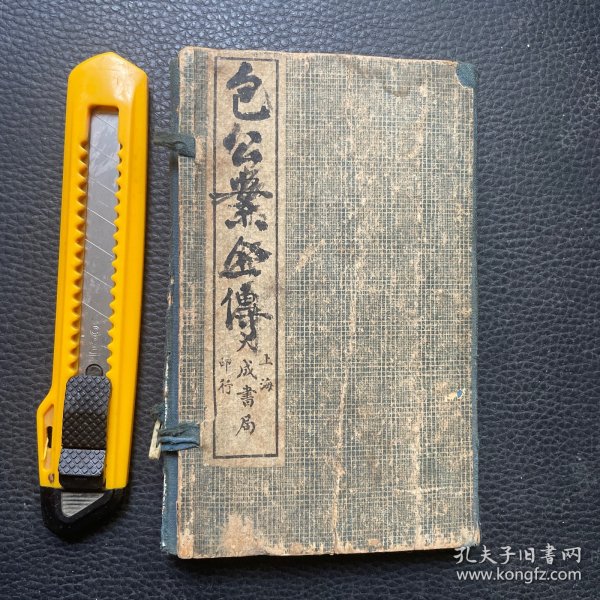 包公案全傳
上海
大成書局
印行
孔夫子旧書网
www.kongfz.com